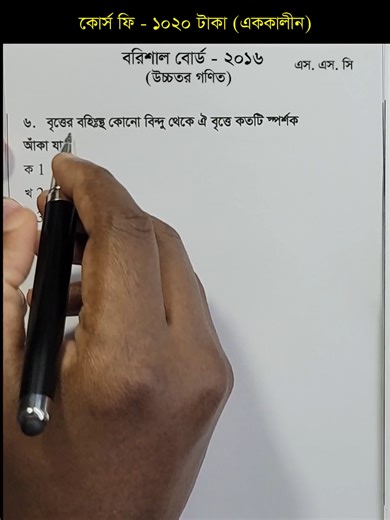 কোর্স ফি - ১০২০ টাকা (এককালীন)
বরিশাল বোর্ড - ২০১৬
এস. এস. সি
(উচ্চতর গণিত)
৬. বৃত্তের বহিঃস্থ কোনো বিন্দু থেকে ঐ বৃত্তে কতটি স্পর্শক
আঁকা
ক 1
খ 2